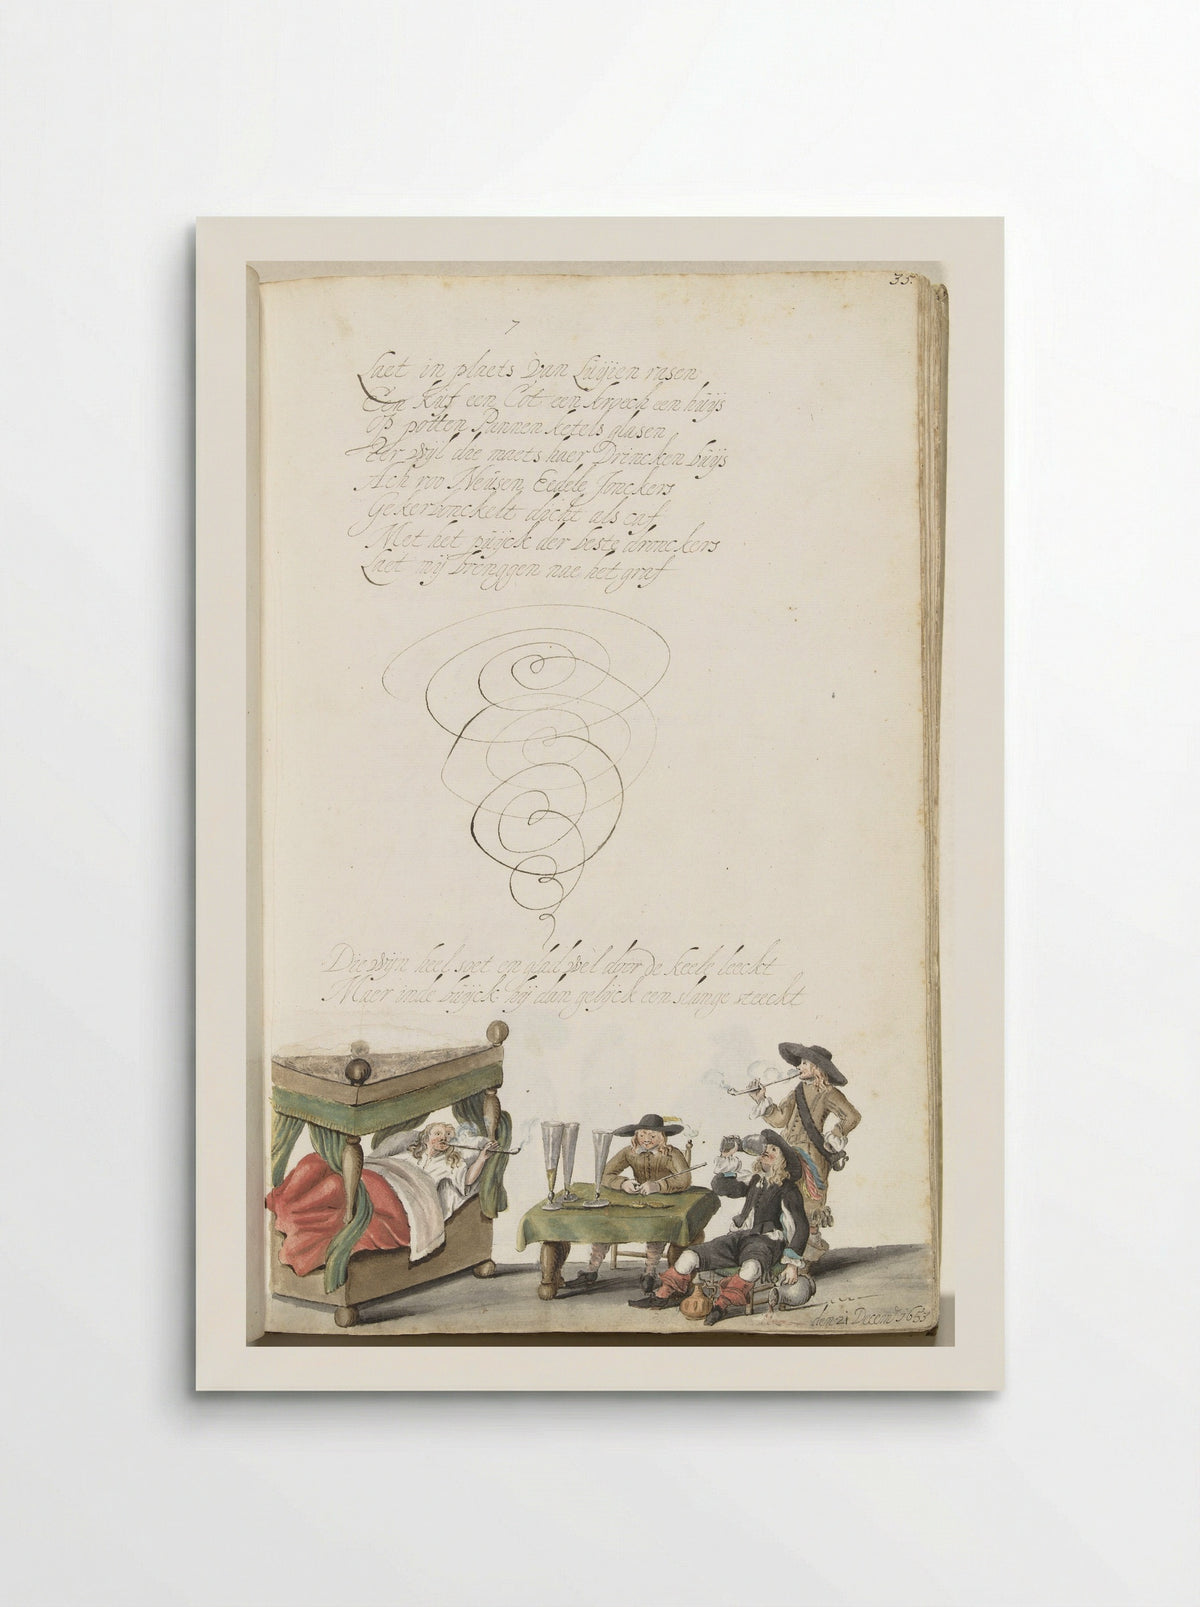 35.
7
Laet in plaets van Luijien rasen
Een Kuf een Cot een kroech een huijs
Op potten Pannen ketels glasen
Ter wijl die maets haer Drincken buijs
Ach roo Neusen Eedele Jonckers
Gekerbonckelt dicht als caf
Met het puijck der beste dronckers
Laet mij brenggen nae het graf
Die wijn heel soet en glad wel door de keele leeckt
Maer inde buijck hij dan gelijck een slange steeckt
den 21 Decemr 1653